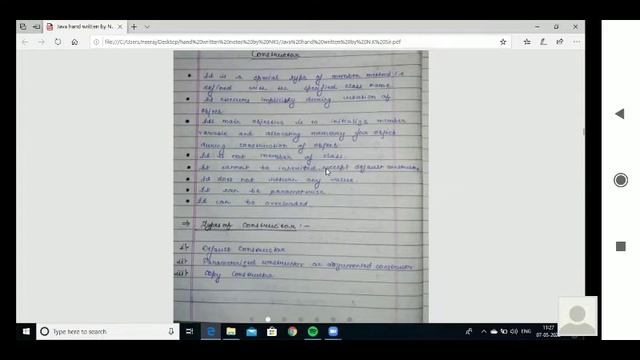 Java hand written by N.
file:///C:/Users/neeraj/Desktop/hand%20written%20notes%20by%20NKS/Java%20hand%20written%20by%20N.K%20Sir.pdf
Constructor
It is a special type of member method is
defined with the specified class name
It executes implicitly during creation of
object
Its main objective is to initialize member
variable and allocating memory for object
during construction of object
It is not member of class.
It cannot be inherited except default constructor
It does not return any value.
It can be parameterise
It can be overloaded.
⇒ Types of Constructor :-
i) Default Constructor
ii) Parameterized constructor or argumented constructor
iii) Copy Constructor
Type here to search
11:27
07-05-2020